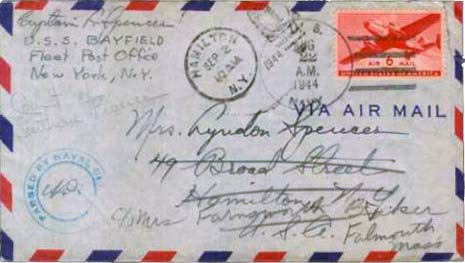 Captain Spencer
U.S.S. BAYFIELD
Fleet Post Office
New York, N.Y.
HAMILTON
SEP 2
10 AM
N.Y.
1944
U. S.
AUG
22
A.M.
1944
NAVY
AIR 6 MAIL
UNITED STATES OF AMERICA
VIA AIR MAIL
Mrs. Lyndon Spencer
49 Broad Street
Hamilton, N.Y.
c/o Mrs Farnsworth Baker
U.S.A. Falmouth
Mass
PASSED BY NAVAL